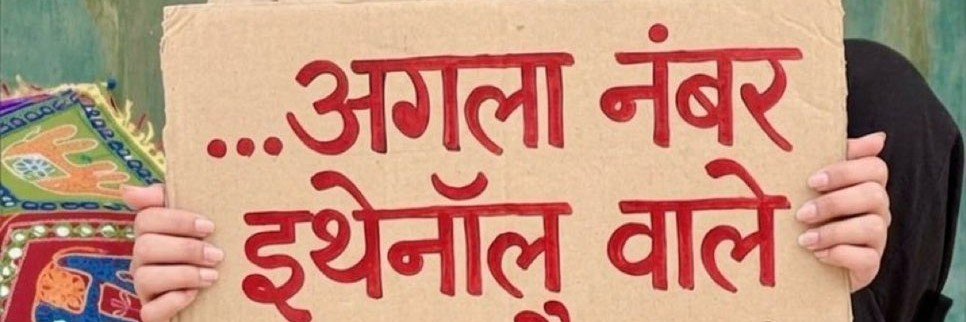 ...अगला नंबर
इथेनॉल वाले